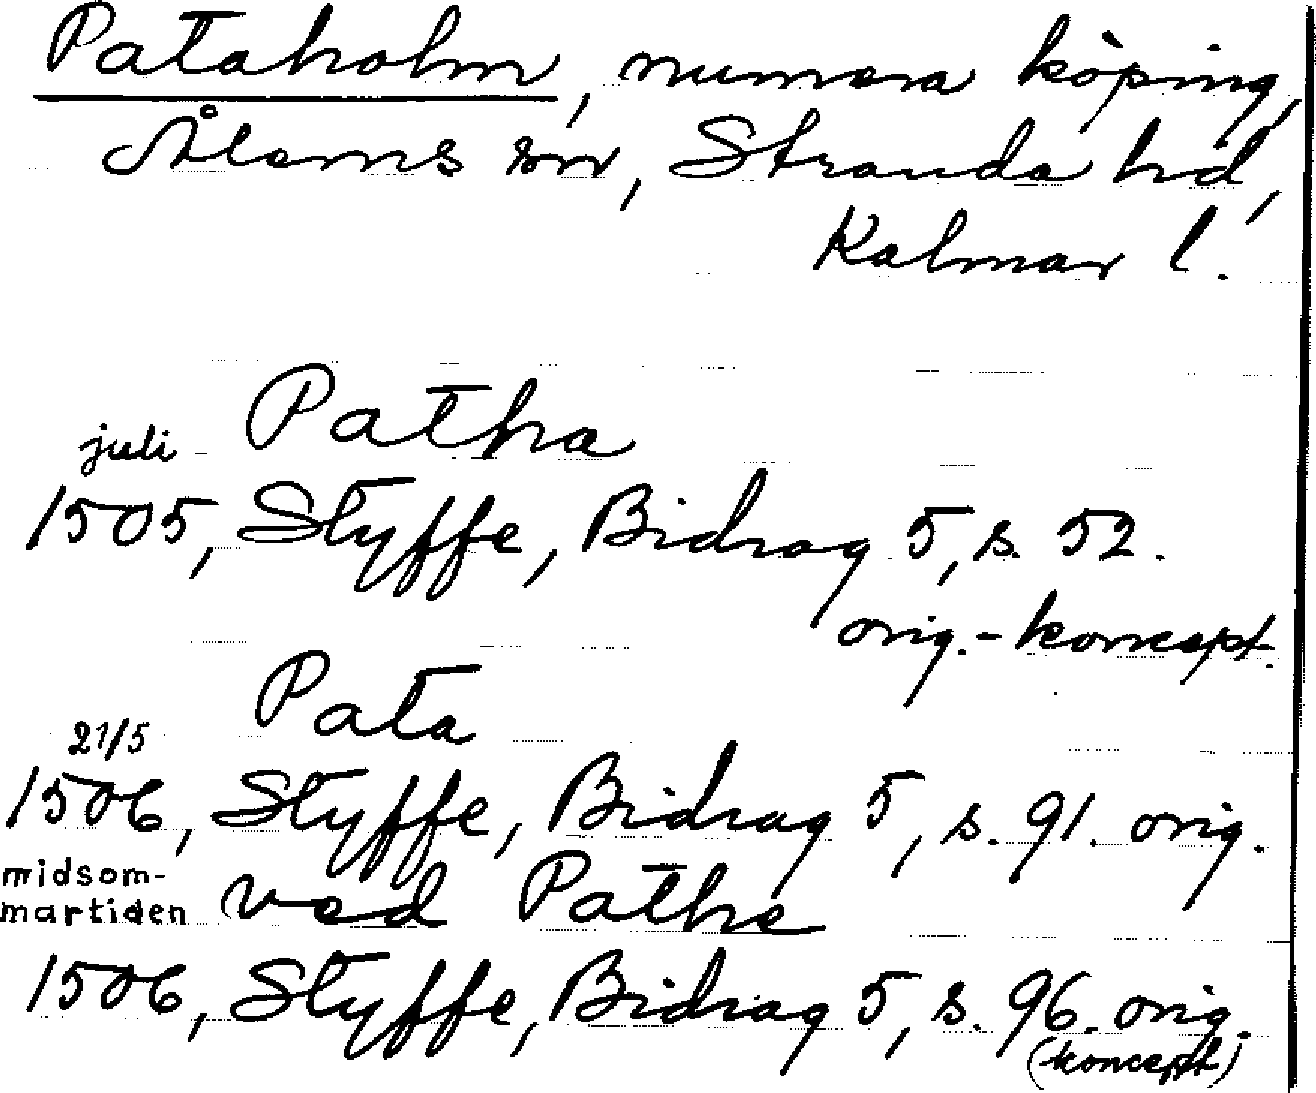 Pataholm, numera köping,
Ålems sn, Stranda hd,
Kalmar l.
Patha
juli
1505, Styffe, Bidrag 5, s. 52.
orig.-koncept.
Pata
21/5
1506, Styffe, Bidrag 5, s. 91. orig.
midsom-
martiden
ved Pathe
1506, Styffe, Bidrag 5, s. 96. orig.
(koncept)